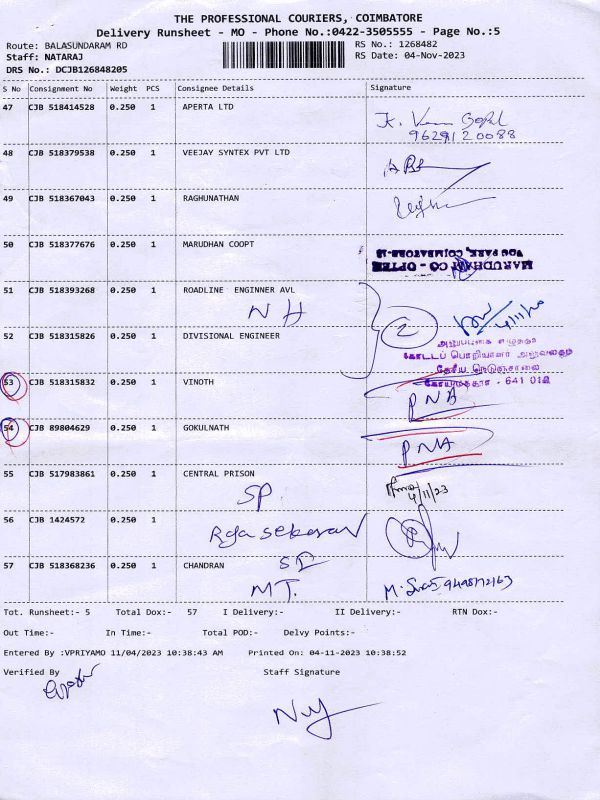 THE PROFESSIONAL COURIERS, COIMBATORE
Delivery Runsheet - MO - Phone No.:0422-3505555 - Page No.:5
Route: BALASUNDARAM RD
RS No.: 1268482
Staff: NATARAJ
RS Date: 04-Nov-2023
DRS No.: DCJB126848205
S No Consignment No Weight PCS Consignee Details Signature
47 CJB 518414528 0.250 1 APERTA LTD
9629120088
48 CJB 518379538 0.250 1 VEEJAY SYNTEX PVT LTD
49 CJB 518367043 0.250 1 RAGHUNATHAN
50 CJB 518377676 0.250 1 MARUDHAN COOPT
MARUDHAM CO - OPTEX
VOC PARK, COIMBATORE-18
51 CJB 518393268 0.250 1 ROADLINE ENGINNER AVL
NH
2
4/11/20
52 CJB 518315826 0.250 1 DIVISIONAL ENGINEER
கோட்டப் பொறியாளர் அலுவலகம்
தேசிய நெடுஞ்சாலை
கோயமுத்தூர் - 641 018
53 CJB 518315832 0.250 1 VINOTH
PNA
54 CJB 89804629 0.250 1 GOKULNATH
PNA
55 CJB 517983861 0.250 1 CENTRAL PRISON
SP.
4/11/23
56 CJB 1424572 0.250 1
Rajasekaran
SI
57 CJB 518368236 0.250 1 CHANDRAN
MT.
Tot. Runsheet:- 5 Total Dox:- 57 I Delivery:- II Delivery:- RTN Dox:-
Out Time:- In Time:- Total POD:- Delvy Points:-
Entered By :VPRIYAMO 11/04/2023 10:38:43 AM Printed On: 04-11-2023 10:38:52
Verified By Staff Signature